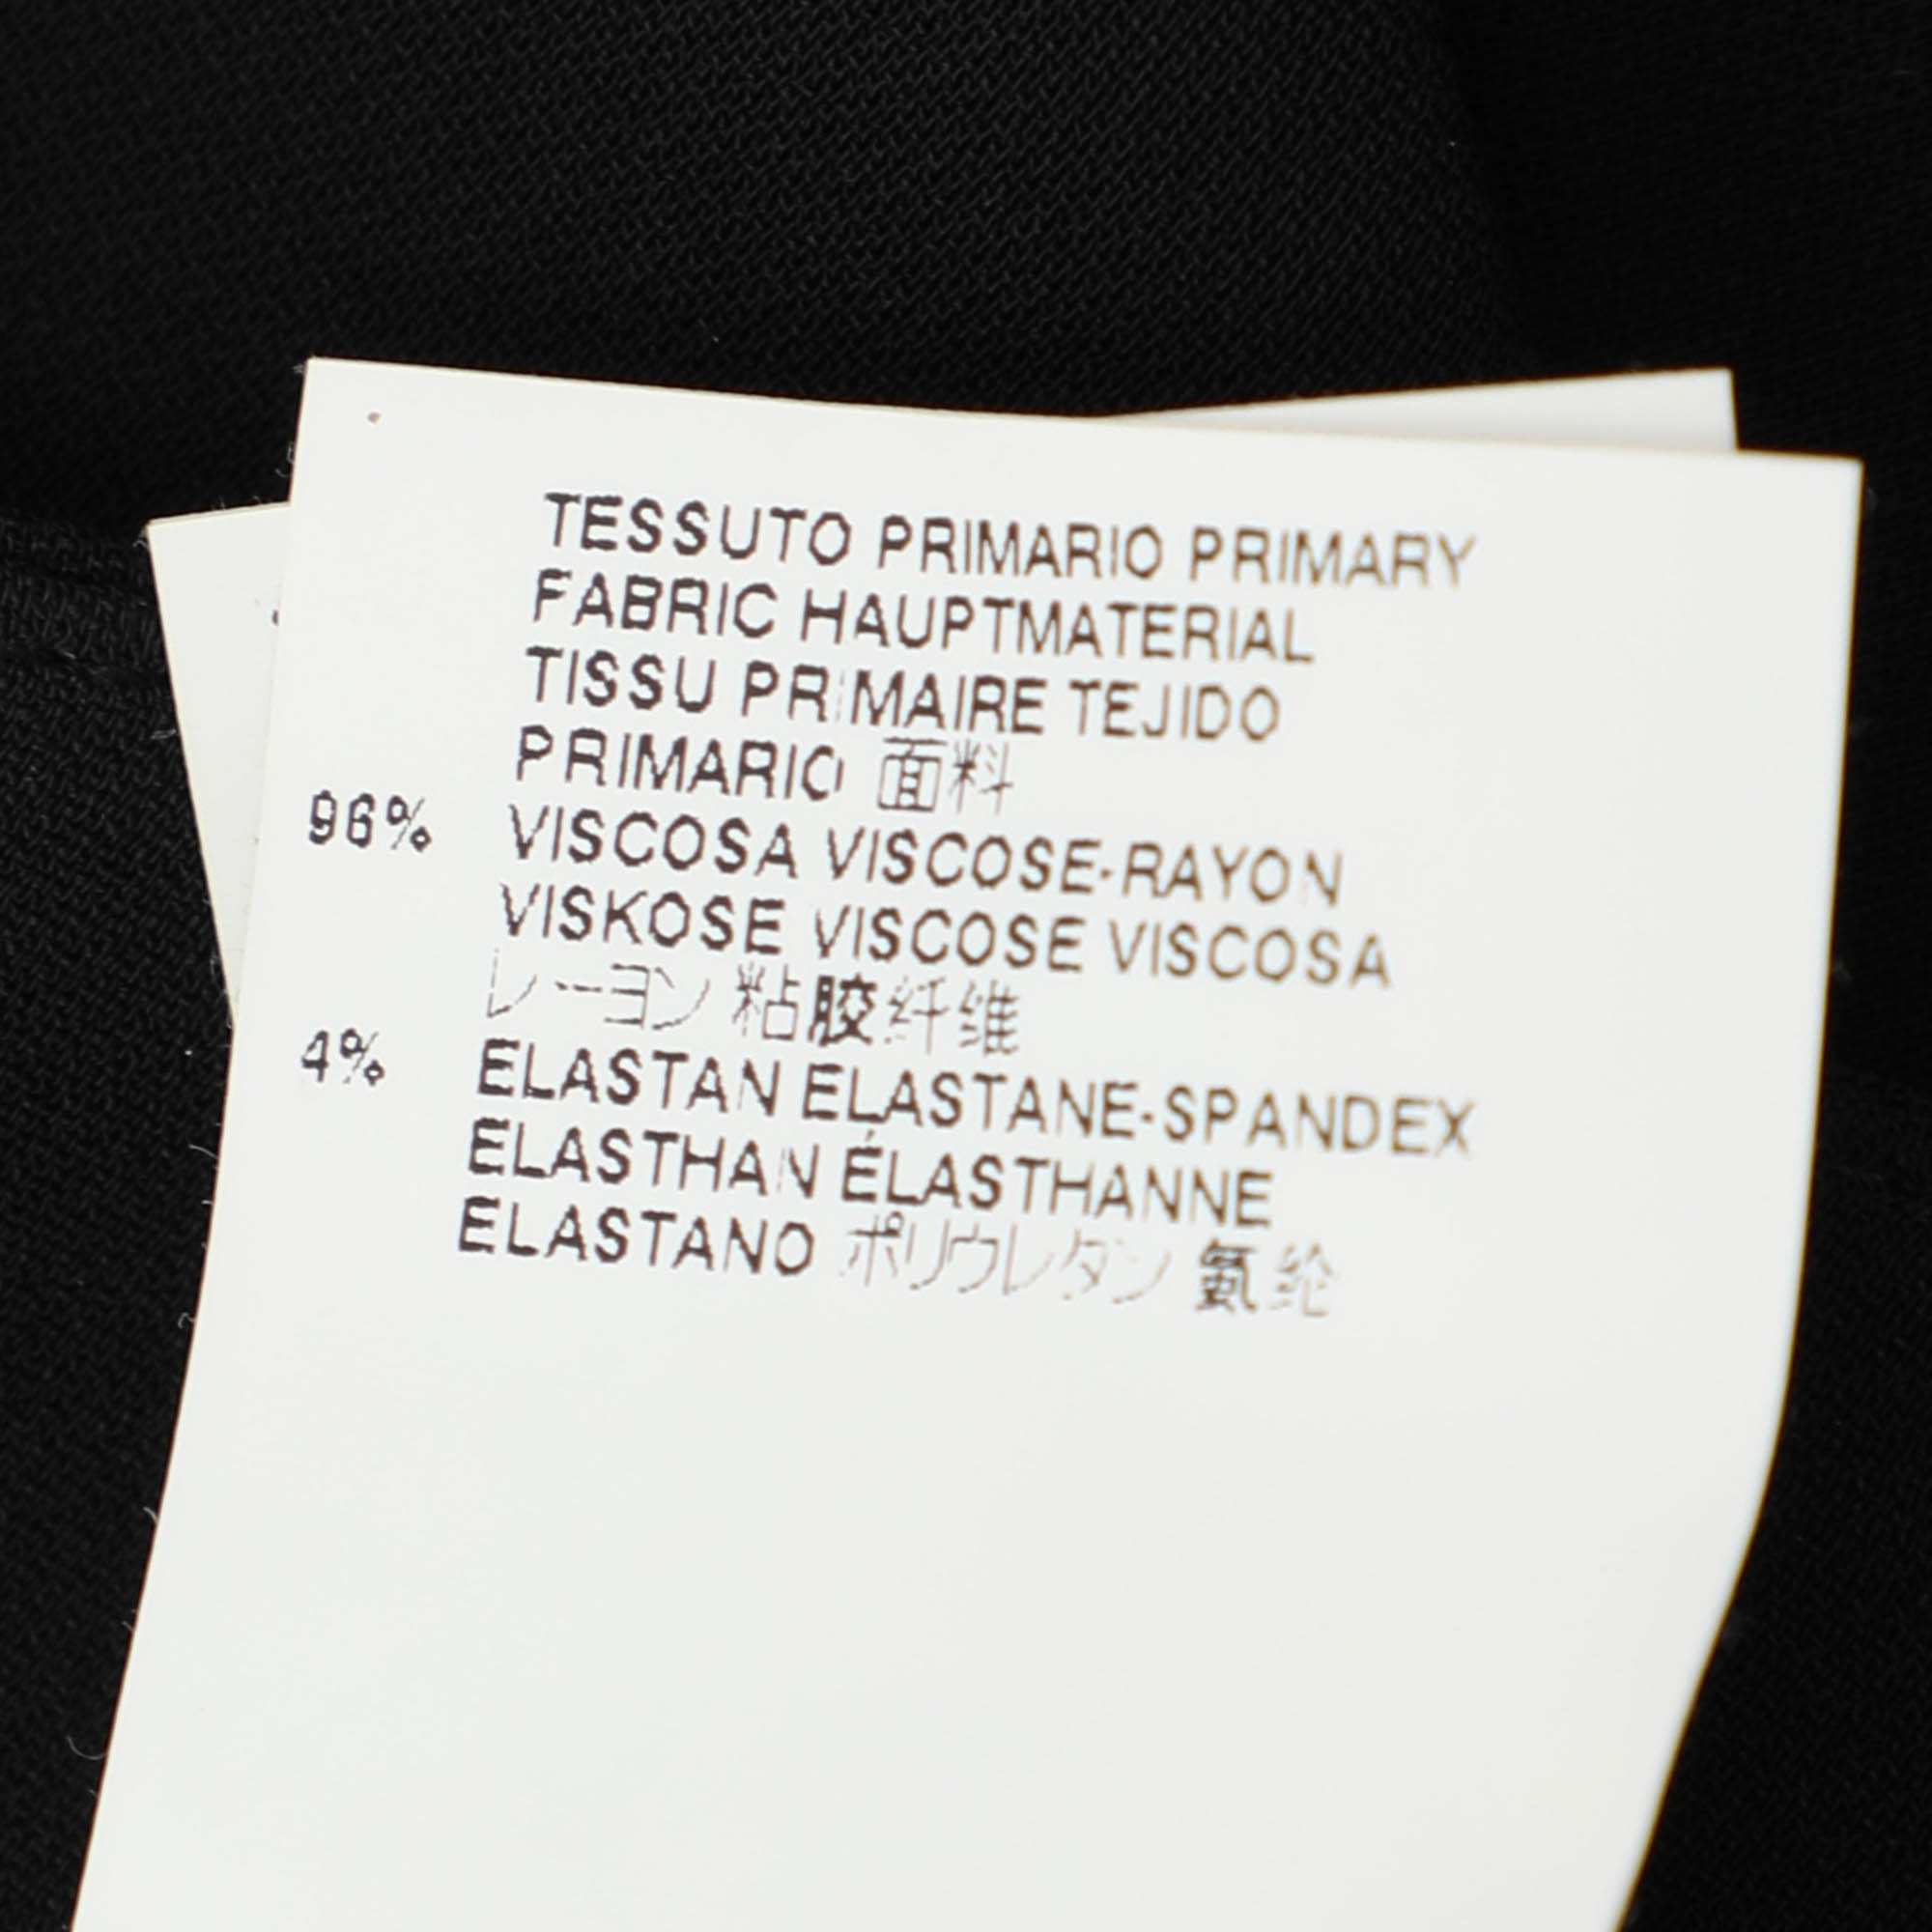 TESSUTO PRIMARIO PRIMARY
FABRIC HAUPTMATERIAL
TISSU PRIMAIRE TEJIDO
PRIMARIO 面料
96% VISCOSA VISCOSE-RAYON
VISKOSE VISCOSE VISCOSA
レーヨン 粘胶纤维
4% ELASTAN ELASTANE-SPANDEX
ELASTHAN ÉLASTHANNE
ELASTANO ポリウレタン 氨纶